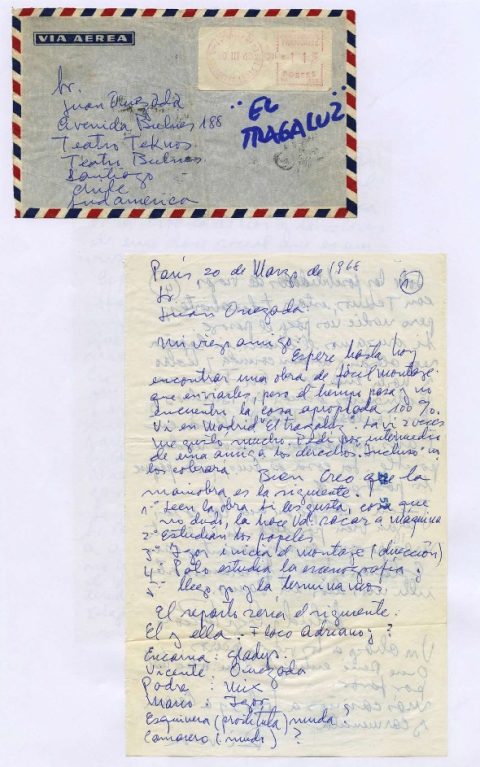 VIA AEREA
Sr.
Juan Quezada
Avenida Bulnes 188
Teatro Teknos
Teatro Bulnes
Santiago
Chile
Sudamerica
"EL
TRAGALUZ"
París 20 de Marzo de 1968
Sr
Juan Quezada
mi viejo amigo
Espere hasta hoy
encontrar una obra de fácil montaje
que enviarles, pero el tiempo pasa y no
encuentro la cosa apropiada 100%.
Vi en Madrid "El tragaluz". La vi 2 veces
me gustó mucho. Pedi por intermedio
de una amiga los derechos. Incluso no
los cobrara
Bien Creo que la
maniobra es la siguiente.
1º Leen la obra, si les gusta, cosa que
no dudo, la hace Ud. sacar a máquina
2º Estudian los papeles
3º Igor inicia el montaje (dirección)
4º Polo estudia la escenografía.
5º llego yo y la terminamos.
El reparto sería el siguiente.
El y ella: Flaco Adriano y ?
Encarna: Gladys.
Vicente: Quezada
Padre :
Mario : Igor
Esquinera (prostituta) muda:
Camarero (mudo) ?